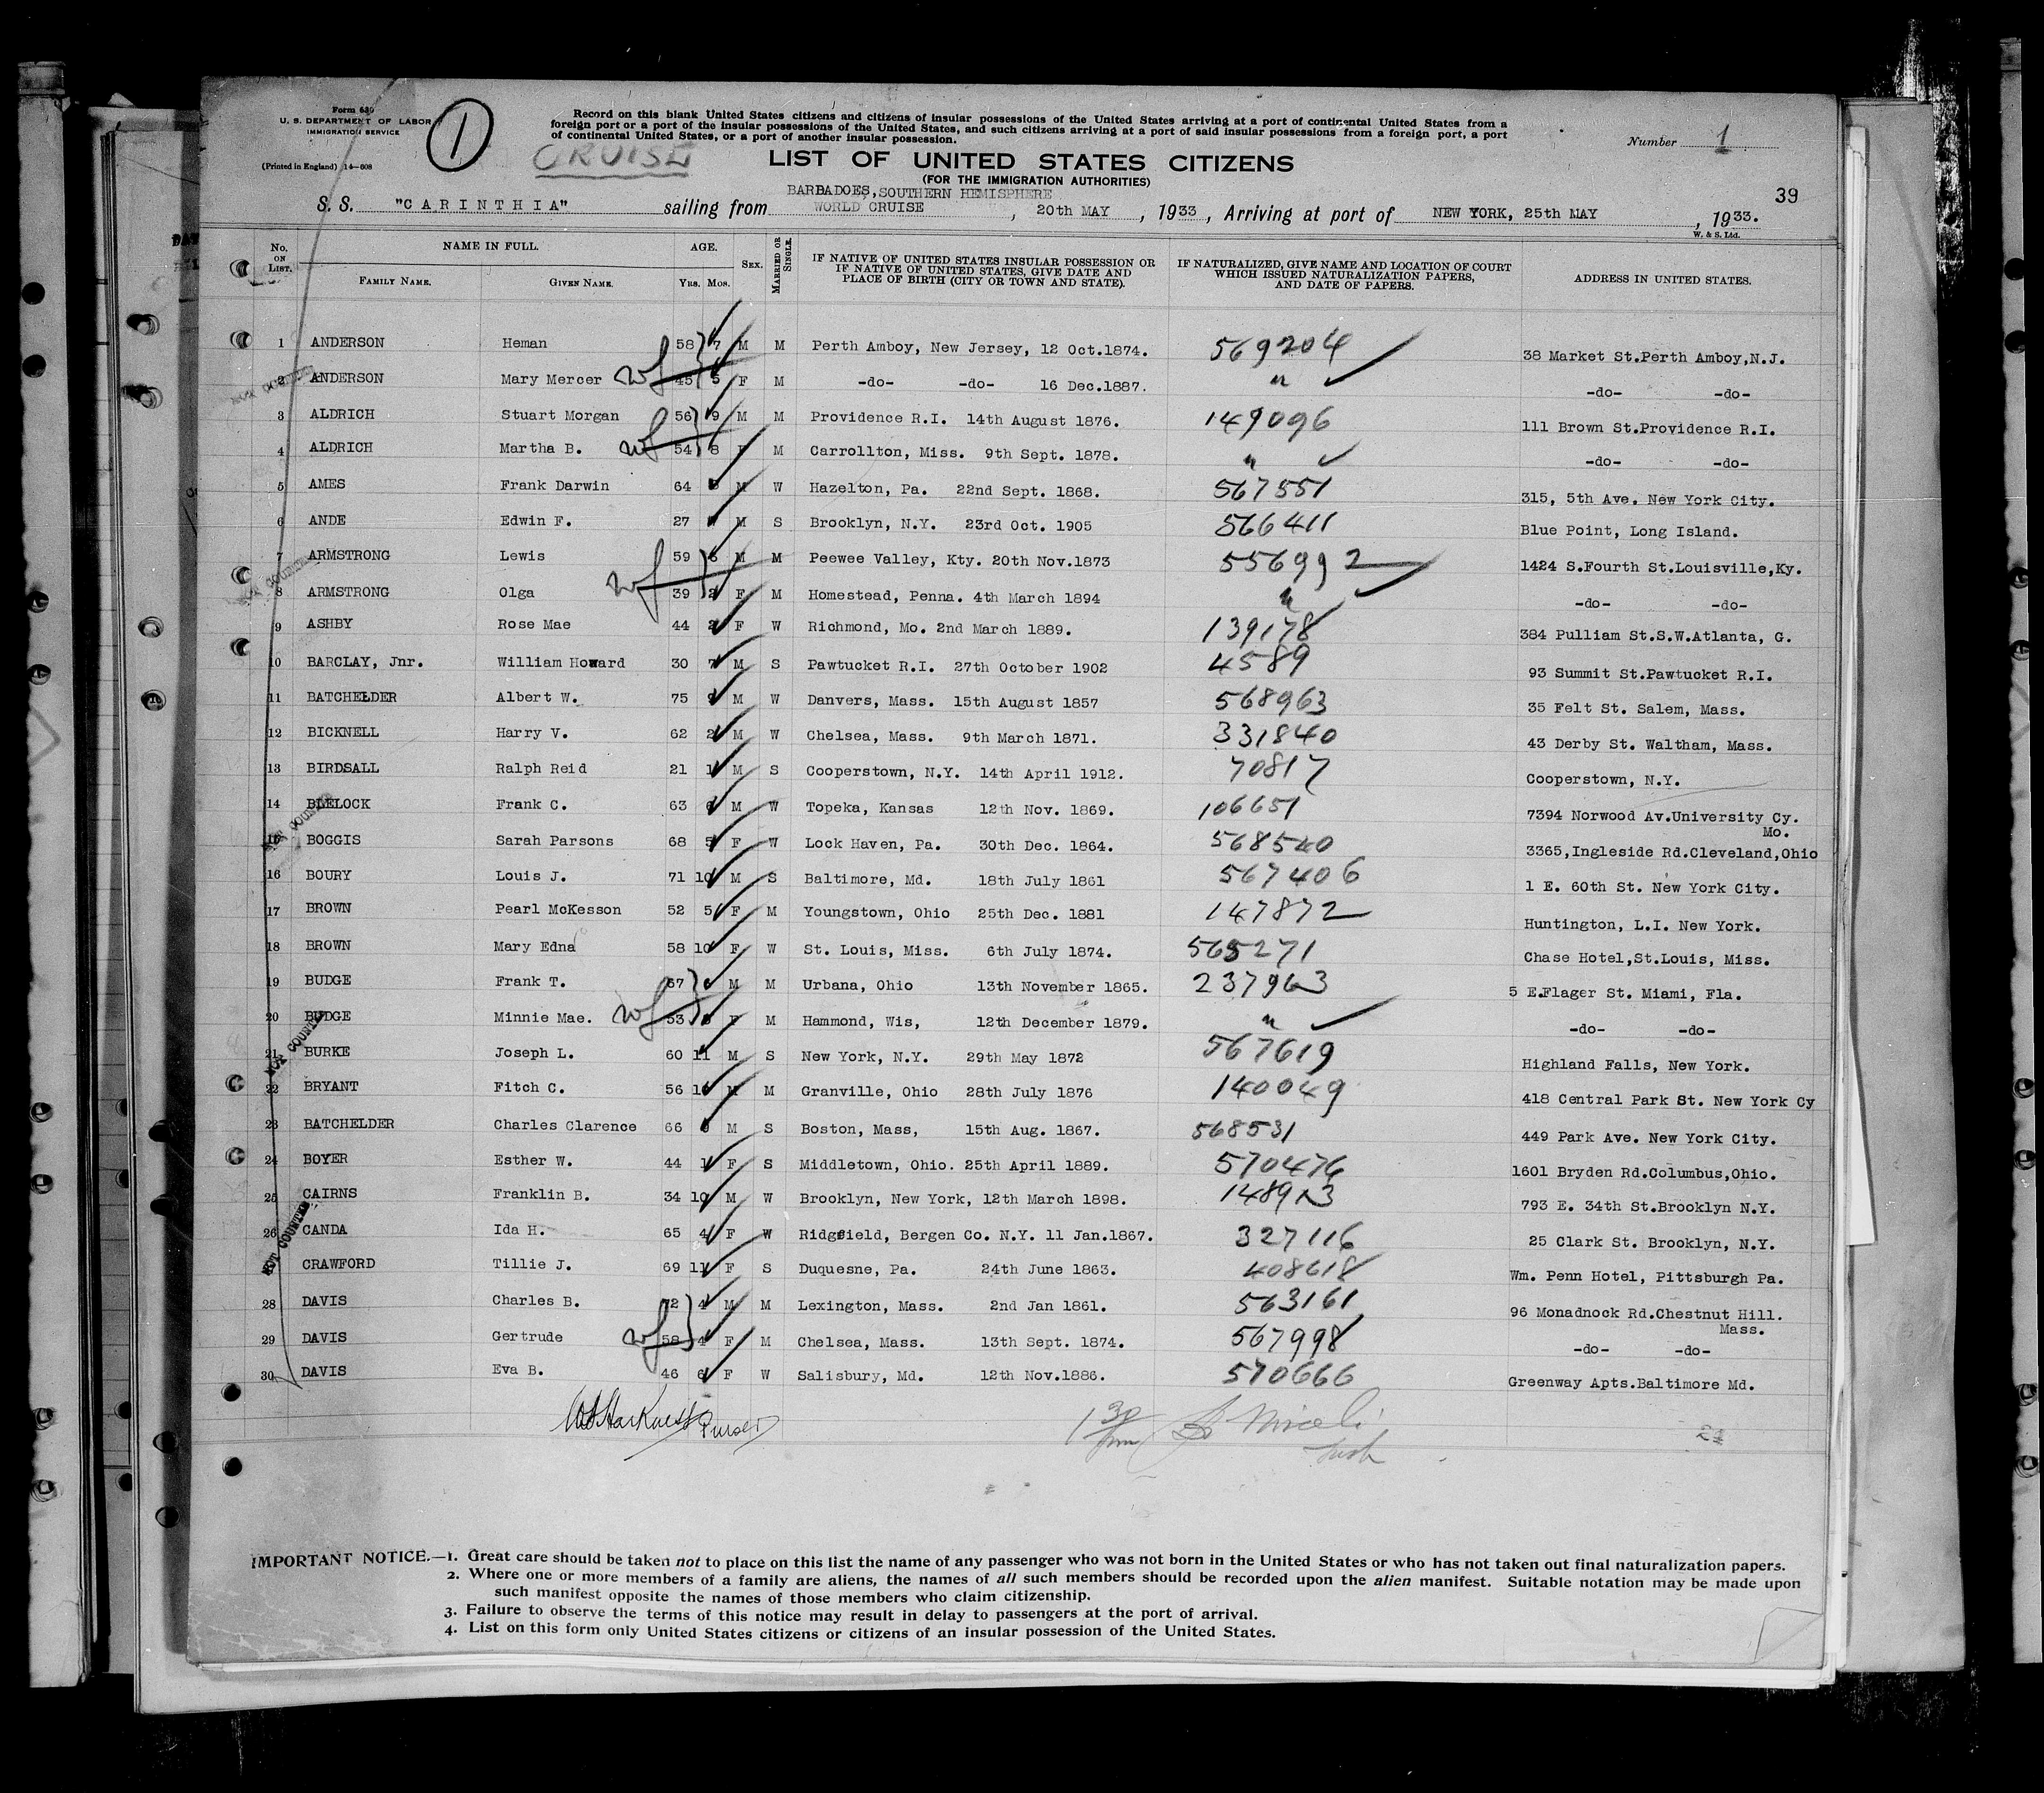 Form 630
U. S. DEPARTMENT OF LABOR
IMMIGRATION SERVICE
(Printed in England) 14—608
1
CRUISE
Record on this blank United States citizens and citizens of insular possessions of the United States arriving at a port of continental United States from a
foreign port or a port of the insular possessions of the United States, and such citizens arriving at a port of said insular possessions from a foreign port, a port
of continental United States, or a port of another insular possession.
Number 1
LIST OF UNITED STATES CITIZENS
(FOR THE IMMIGRATION AUTHORITIES)
39
BARBADOES, SOUTHERN HEMISPHERE
S. S. "CARINTHIA" sailing from WORLD CRUISE, 20th MAY, 1933, Arriving at port of NEW YORK, 25th MAY, 1933.
W. & S. Ltd.
No. ON LIST. NAME IN FULL. FAMILY NAME. GIVEN NAME. AGE. YRS. MOS. SEX. MARRIED OR SINGLE. IF NATIVE OF UNITED STATES INSULAR POSSESSION OR IF NATIVE OF UNITED STATES, GIVE DATE AND PLACE OF BIRTH (CITY OR TOWN AND STATE). IF NATURALIZED, GIVE NAME AND LOCATION OF COURT WHICH ISSUED NATURALIZATION PAPERS, AND DATE OF PAPERS. ADDRESS IN UNITED STATES.
1 ANDERSON Heman 58 7 M M Perth Amboy, New Jersey, 12 Oct.1874. 569204 38 Market St.Perth Amboy,N.J.
2 ANDERSON Mary Mercer wf 45 5 F M -do- -do- 16 Dec.1887. " -do- -do-
3 ALDRICH Stuart Morgan 56 9 M M Providence R.I. 14th August 1876. 149096 111 Brown St.Providence R.I.
4 ALDRICH Martha B. wf 54 8 M Carrollton, Miss. 9th Sept. 1878. " -do- -do-
5 AMES Frank Darwin 64 M W Hazelton, Pa. 22nd Sept. 1868. 567551 315, 5th Ave. New York City.
6 ANDE Edwin F. 27 M S Brooklyn, N.Y. 23rd Oct. 1905 566411 Blue Point, Long Island.
7 ARMSTRONG Lewis 59 6 M M Peewee Valley, Kty. 20th Nov.1873 556992 1424 S.Fourth St.Louisville,Ky.
8 ARMSTRONG Olga wf 39 2 F M Homestead, Penna. 4th March 1894 " -do- -do-
9 ASHBY Rose Mae 44 2 F W Richmond, Mo. 2nd March 1889. 139178 384 Pulliam St.S.W.Atlanta, G.
10 BARCLAY, Jnr. William Howard 30 7 M S Pawtucket R.I. 27th October 1902 4589 93 Summit St.Pawtucket R.I.
11 BATCHELDER Albert W. 75 9 M W Danvers, Mass. 15th August 1857 568963 35 Felt St. Salem, Mass.
12 BICKNELL Harry V. 62 2 M W Chelsea, Mass. 9th March 1871. 331840 43 Derby St. Waltham, Mass.
13 BIRDSALL Ralph Reid 21 1 M S Cooperstown, N.Y. 14th April 1912. 70817 Cooperstown, N.Y.
14 BLELOCK Frank C. 63 6 M W Topeka, Kansas 12th Nov. 1869. 106651 7394 Norwood Av.University Cy.
Mo.
15 BOGGIS Sarah Parsons 68 5 F W Lock Haven, Pa. 30th Dec. 1864. 568540 3365,Ingleside Rd.Cleveland,Ohio
16 BOURY Louis J. 71 10 M S Baltimore, Md. 18th July 1861 567406 1 E. 60th St. New York City.
17 BROWN Pearl McKesson 52 5 F M Youngstown, Ohio 25th Dec. 1881 147872 Huntington, L.I. New York.
18 BROWN Mary Edna 58 10 F W St. Louis, Miss. 6th July 1874. 565271 Chase Hotel,St.Louis, Miss.
19 BUDGE Frank T. 67 M M Urbana, Ohio 13th November 1865. 237963 5 E.Flager St. Miami, Fla.
20 BUDGE Minnie Mae. wf 53 F M Hammond, Wis, 12th December 1879. " -do- -do-
21 BURKE Joseph L. 60 11 M S New York, N.Y. 29th May 1872 567619 Highland Falls, New York.
22 BRYANT Fitch C. 56 10 M M Granville, Ohio 28th July 1876 140049 418 Central Park St. New York Cy
23 BATCHELDER Charles Clarence 66 M S Boston, Mass, 15th Aug. 1867. 568531 449 Park Ave. New York City.
24 BOYER Esther W. 44 1 F S Middletown, Ohio. 25th April 1889. 570476 1601 Bryden Rd.Columbus,Ohio.
25 CAIRNS Franklin B. 34 10 M W Brooklyn, New York, 12th March 1898. 793 E. 34th St.Brooklyn N.Y.
26 CANDA Ida H. 65 4 F W Ridgfield, Bergen Co. N.Y. 11 Jan.1867. 327116 25 Clark St. Brooklyn, N.Y.
CRAWFORD Tillie J. 69 11 F S Duquesne, Pa. 24th June 1863. 408618 Wm. Penn Hotel, Pittsburgh Pa.
28 DAVIS Charles B. 72 4 M M Lexington, Mass. 2nd Jan 1861. 563161 96 Monadnock Rd.Chestnut Hill.
Mass.
29 DAVIS Gertrude wf 58 4 F M Chelsea, Mass. 13th Sept. 1874. 567998 -do- -do-
30 DAVIS Eva B. 46 6 F W Salisbury, Md. 12th Nov.1886. 570666 Greenway Apts.Baltimore Md.
NOT COUNTED
NOT COUNTED
NOT COUNTED
NOT COUNTED
NOT COUNTED
Purser
1 30 pm
IMPORTANT NOTICE.—1. Great care should be taken not to place on this list the name of any passenger who was not born in the United States or who has not taken out final naturalization papers.
2. Where one or more members of a family are aliens, the names of all such members should be recorded upon the alien manifest. Suitable notation may be made upon
such manifest opposite the names of those members who claim citizenship.
3. Failure to observe the terms of this notice may result in delay to passengers at the port of arrival.
4. List on this form only United States citizens or citizens of an insular possession of the United States.